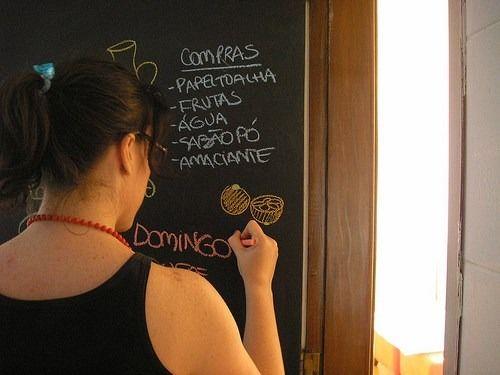 COMPRAS
- PAPEL TOALHA
- FRUTAS
- ÁGUA
- SABÃO PÓ
- AMACIANTE
DOMINGO